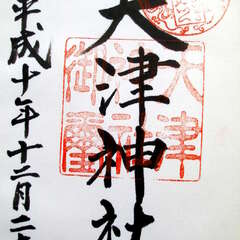 大津神社
平成十年十二月二
大津
神社
御璽